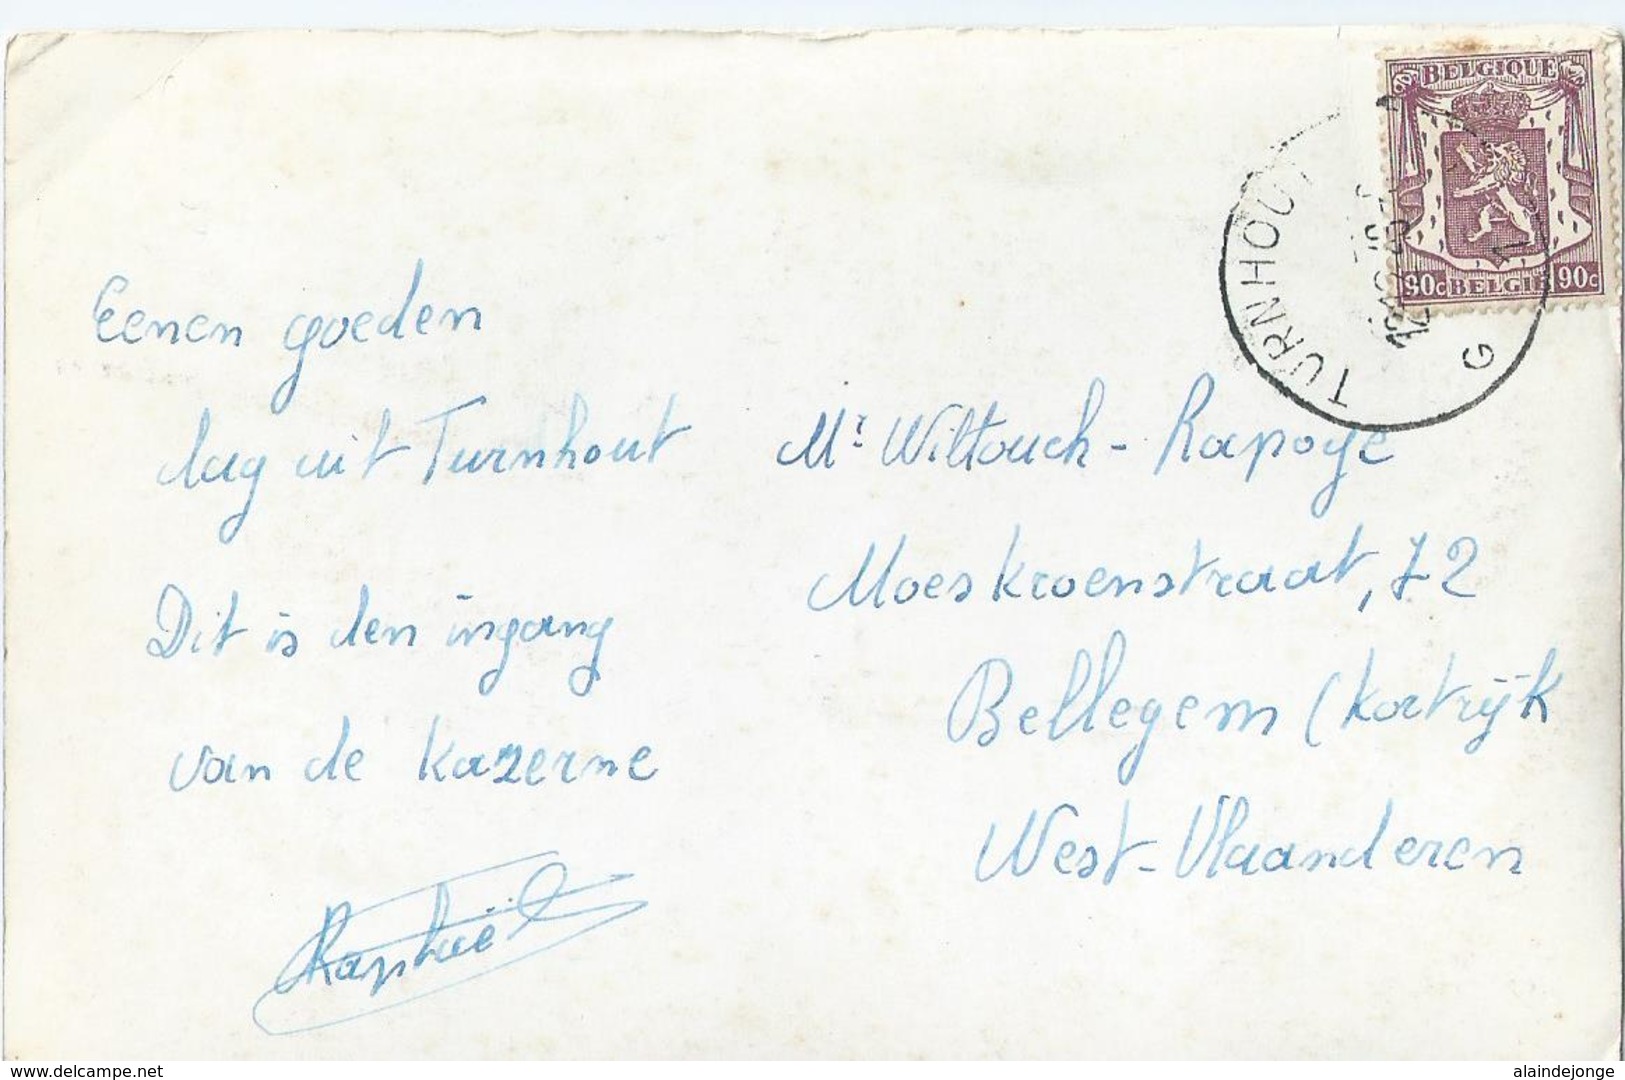 Eenen goeden
dag uit Turnhout
Dit is den ingang
van de kazerne
Raphaël
BELGIQUE
90c BELGIE 90c
TURNHOUT
G
Mr Wiltouch - Rapoye
Moeskroenstraat, 72
Bellegem (Kortrijk
West-Vlaanderen
www.delcampe.net
alaindejonge